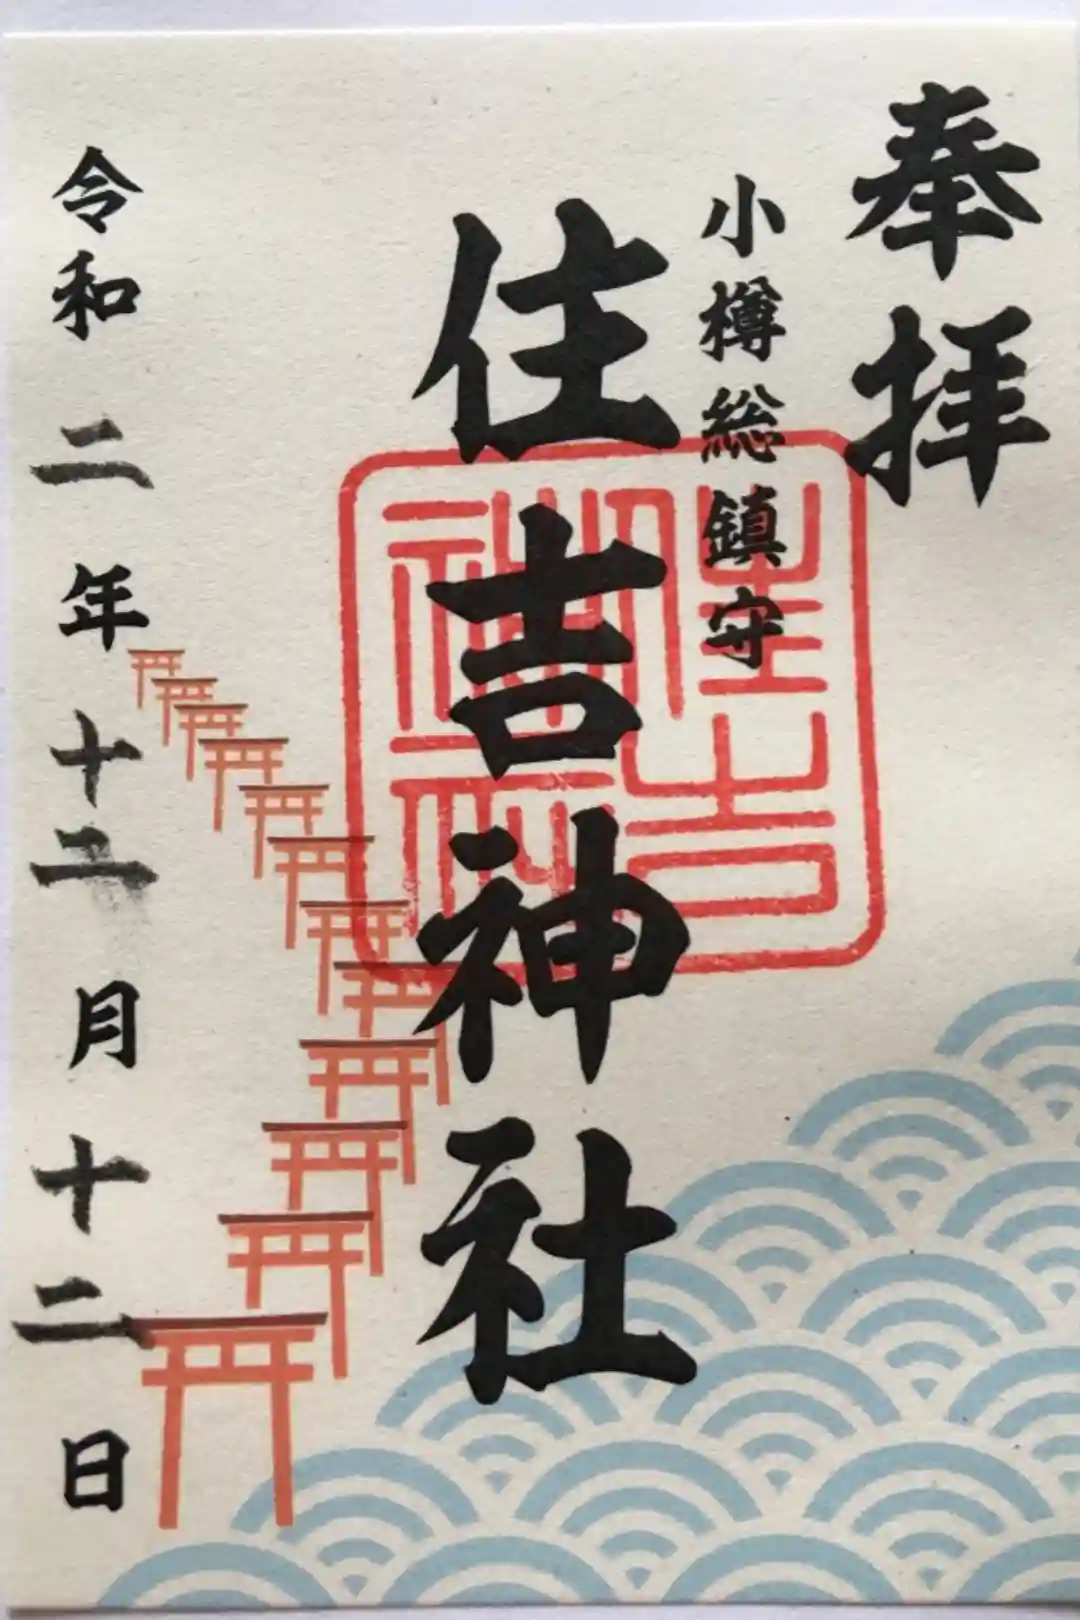 奉拝
小樽総鎮守
住吉神社
住吉神社
令和二年十二月十二日